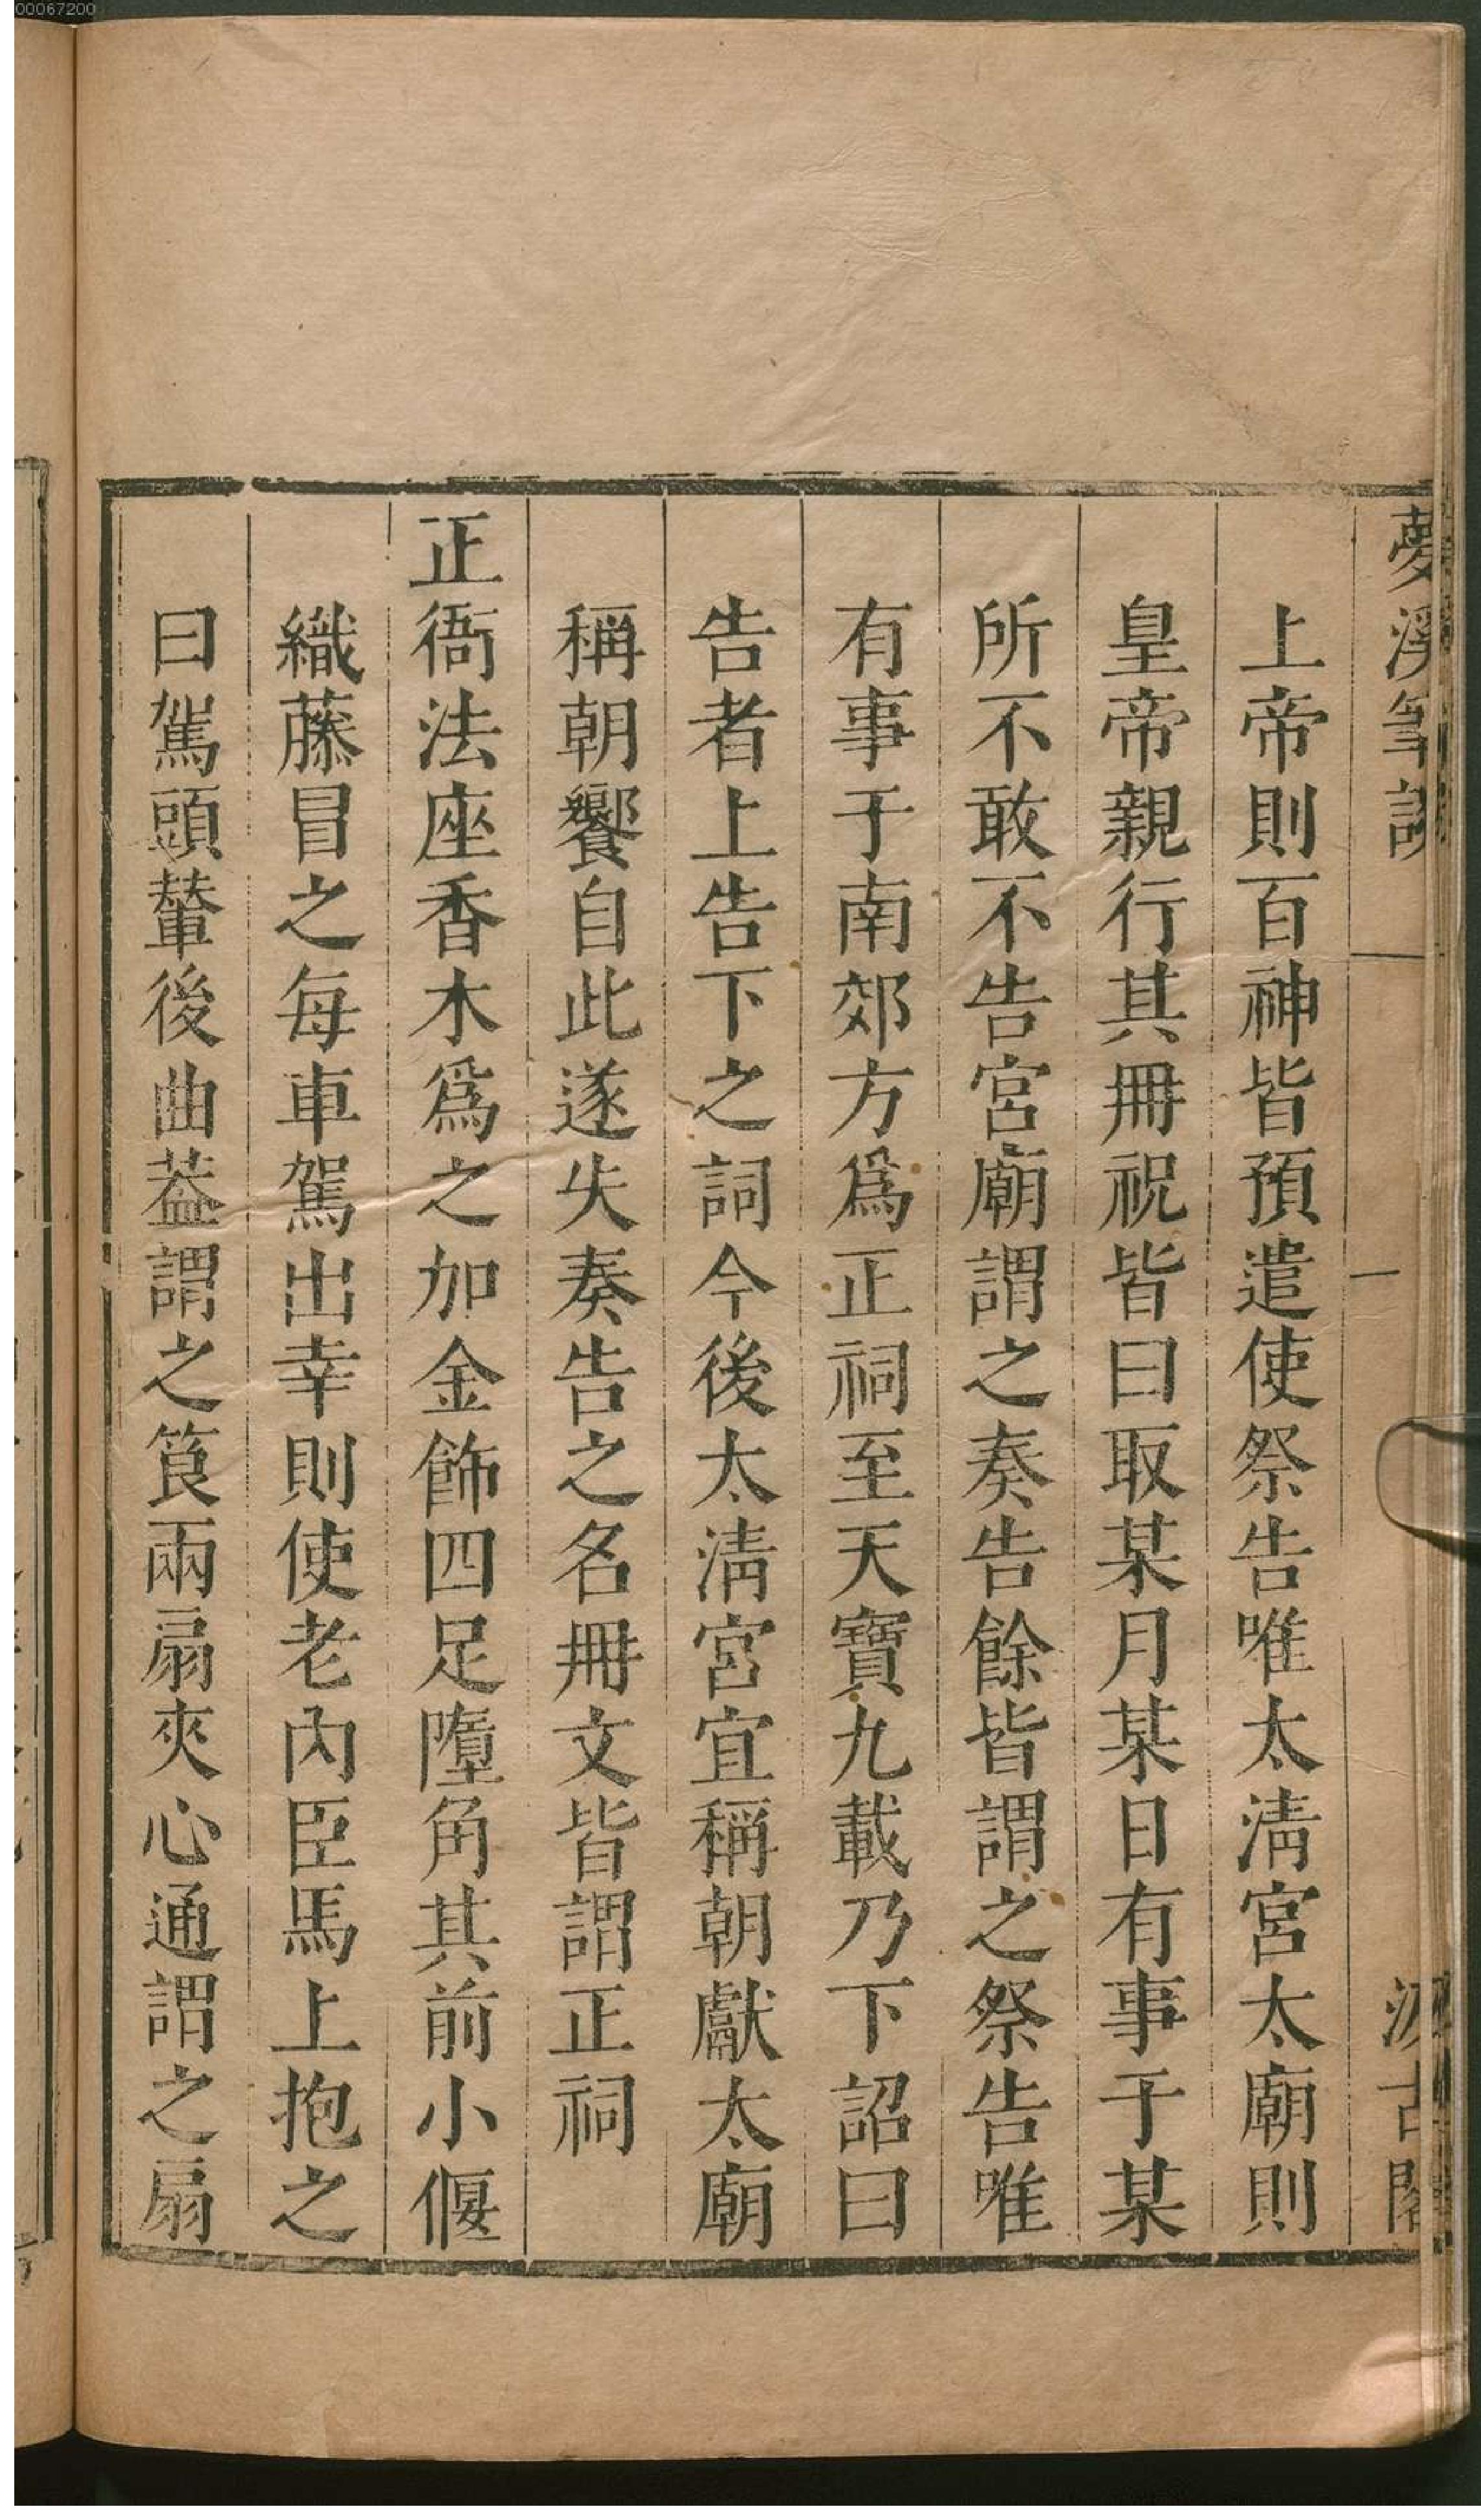 00067200
夢溪筆談 一 一 汲古閣
上帝則百神皆預遣使祭告唯太淸宮太廟則
皇帝親行其冊祝皆曰取某月某日有事于某
所不敢不告宮廟謂之奏告餘皆謂之祭告唯
有事于南郊方爲正祠至天寶九載乃下詔曰
告者上告下之詞今後太淸宮宜稱朝獻太廟
稱朝饗自此遂失奏告之名冊文皆謂正祠
正衙法座香木爲之加金飾四足墮角其前小偃
織藤冒之每車駕出幸則使老內臣馬上抱之
曰駕頭輦後曲葢謂之筤兩扇夾心通謂之扇